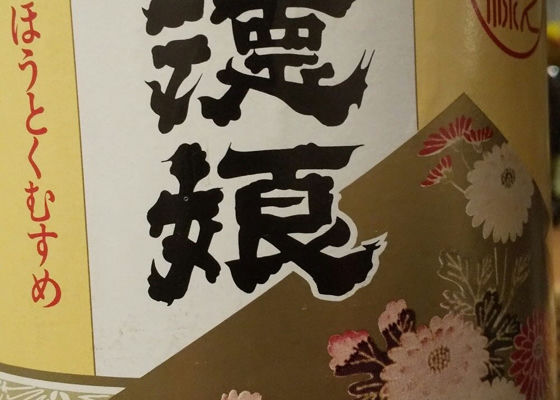 徳娘
ほうとくむすめ